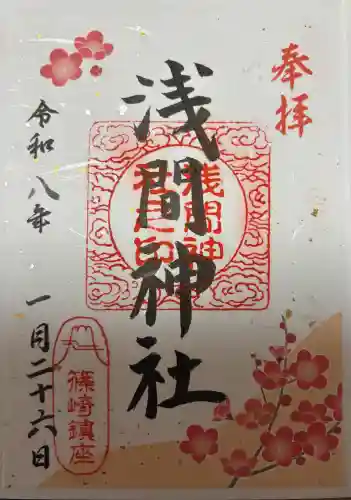 奉拝
浅間神社
浅間神社之印
令和八年
一月二十六日
篠崎鎮座